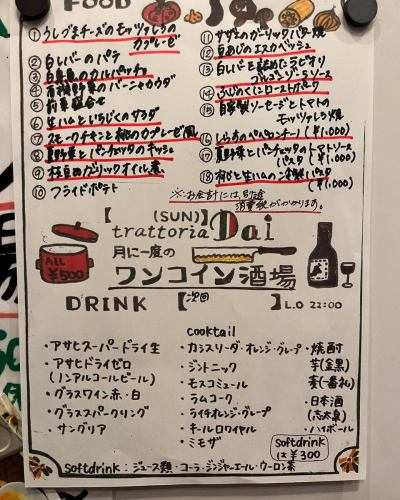 FOOD
① うしづまチーズのモッツァレラの
カプレーゼ
② 白レバーのパテ
③ 白身魚のカルパッチョ
④ 有機野菜のバーニャカウダ
⑤ 前菜盛合せ
⑥ 生ハムといちじくのサラダ
⑦ スモークチキンと桃のカプレーゼ風
⑧ 夏野菜とパンチェッタのキッシュ
⑨ 枝豆のガーリックオイル煮
⑩ フライドポテト
⑪ サザエのガーリックバター焼
⑫ 豆あじのエスカベッシュ
⑬ 白レバーを詰めたラビオリ
ゴルゴンゾーラソース
⑭ ふじのくにローストポーク
⑮ 自家製ソーセージとトマトの
モッツァレラ焼
⑯ しらすのペペロンチーノ (¥1,000)
⑰ 夏野菜とパンチェッタのトマトソース
パスタ (¥1,000)
⑱ 生ハムの パスタ (¥1,000)
※お会計には、別途
消費税がかかります。
【 (SUN)】
trattoria Dai
月に一度の
ワンコイン酒場
ALL
¥500
DRINK 【次回 】L.O 22:00
・アサヒスーパードライ生
・アサヒドライゼロ
(ノンアルコールビール)
・グラスワイン赤・白
・グラスパークリング
・サングリア
cocktail
・カシスソーダ・オレンジ・グレープ
・ジントニック
・モスコミュール
・ラムコーク
・ライチオレンジ・グレープ
・キールロワイヤル
・ミモザ
・焼酎
芋(金黒)
麦(一番札)
・日本酒
(志太泉)
・ハイボール
Softdrink
は¥300
Softdrink：ジュース類・コーラ・ジンジャーエール・ウーロン茶